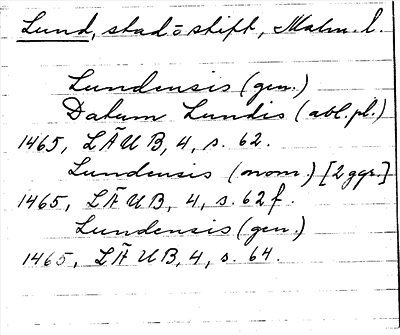 Lund, stad o stift, Malm. l.
Lundensis (gen.)
Datum Lundis (abl. pl.)
1465, LÄUB, 4, s. 62.
Lundensis (nom.) [2 ggr.]
1465, LÄUB, 4, s. 62 f.
Lundensis (gen.)
1465, LÄUB, 4, s. 64.